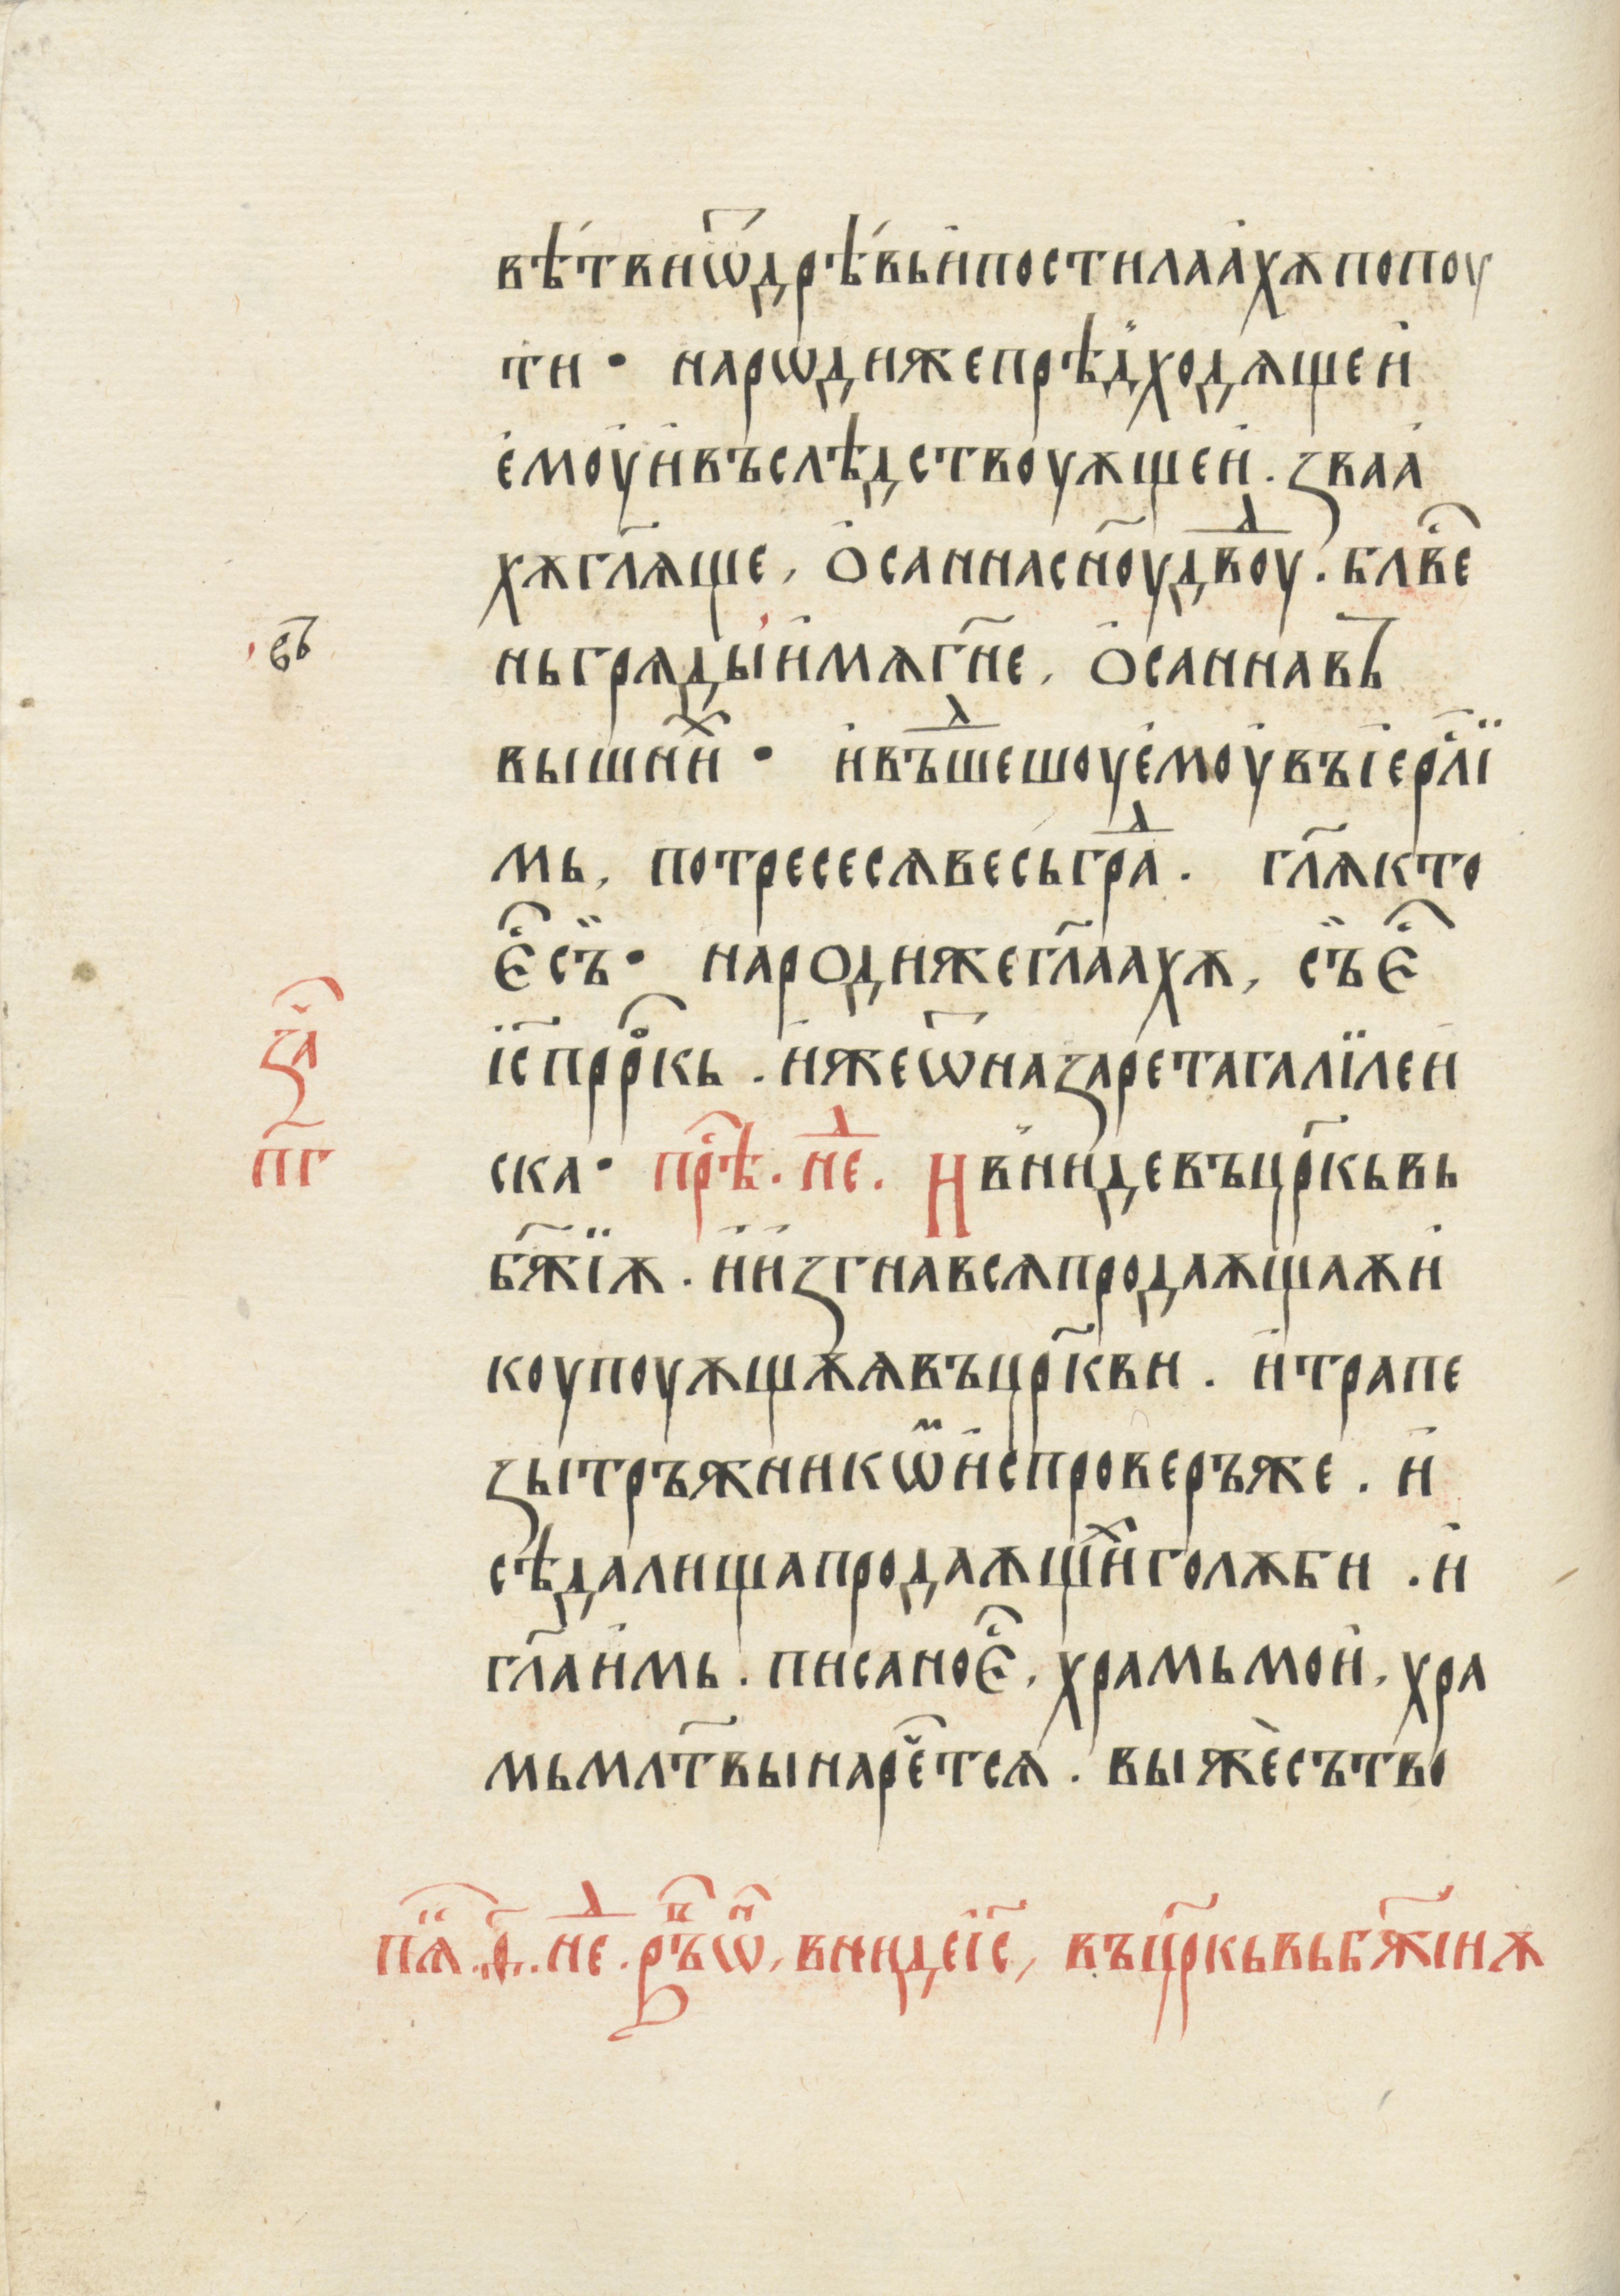 вѣ́твиѿдрѣ́вьи҆постилаа҆хѫпопоу
ти · нарѡдижепрѣдⸯходѧщеи҆
е҆моу҆и҆въслѣдствоуѫщеи҆. ꙁваа҆
хѫгл҃ѧще, ѻ҆саннасн҃оудв҃ⷣоу. блв҇е
въ
ньгрѧды́и҆мѧгн҃е, ѻ҆саннавъ
вышниⷯи · и҆въⷣшешоуе҆моу҆въі҆ерⷭ҇лї
мь, потресесѧвесьграⷣ. гл҃ѧкто
є҇съ̈· народижегл҃аахѫ, съ̈є҇
і҃спррⷪ҇кь. и҆жеѿнаꙁаретагалїлеи
ꙁаⷱ҇
пг҃
ска· прⷣѣ҇. неⷣ. И҆вни́девъцр҃кьвь
бж҃їѫ. и҆и҆ꙁгнавсѧпродаѫщаѫи҆
коупоуѫщѫѧвъцр҃кви. и҆трапе
ꙁытръжникѡⷨи҆спроверъже. и҆
сѣдалищапродаѫщиⷯиголѫби. и҆
гл҃аи҆мь. писаноє҇. храмьмои҆. хра
мьмлт҃вынарⷱ҇етсѧ. выжѐсътво
пⷩ҇ѧ..ѳ҃..неⷣ. връⷡ҇ѡⷩ҇, внидеі҃с, въцр҃кьвьбж҃іиѫ